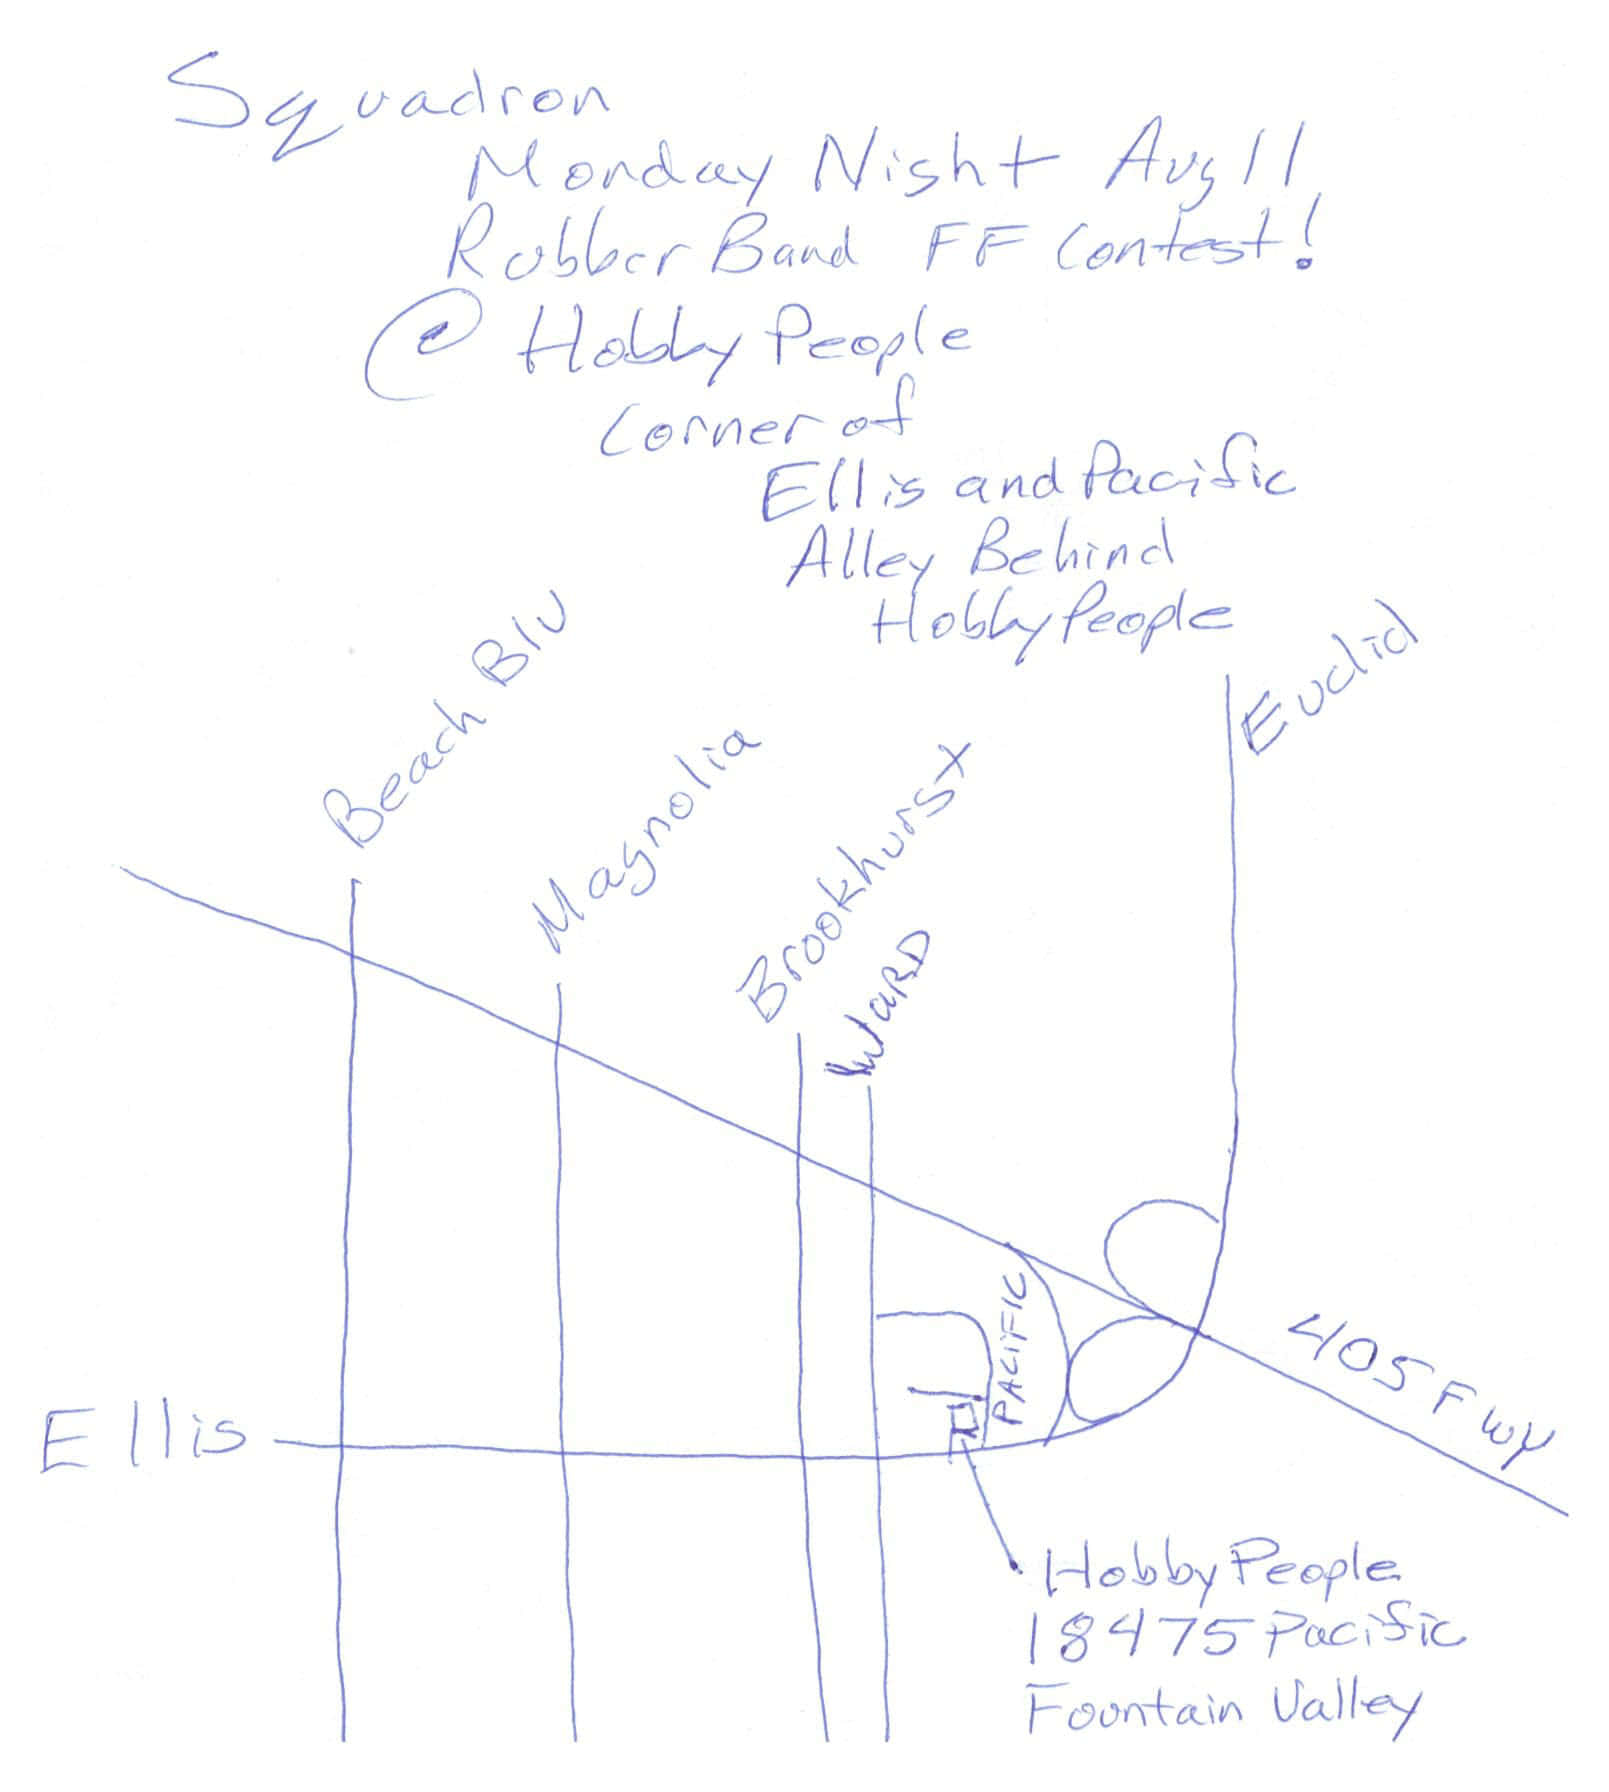 Squadron
Monday Night Aug 11
Rubber Band FF Contest!
@ Hobby People
Corner of
Ellis and Pacific
Alley Behind
Hobby People
Beach Blv
Magnolia
Brookhurst
WARD
Euclid
PACIFIC
405 Fwy
Ellis
Hobby People
18475 Pacific
Fountain Valley